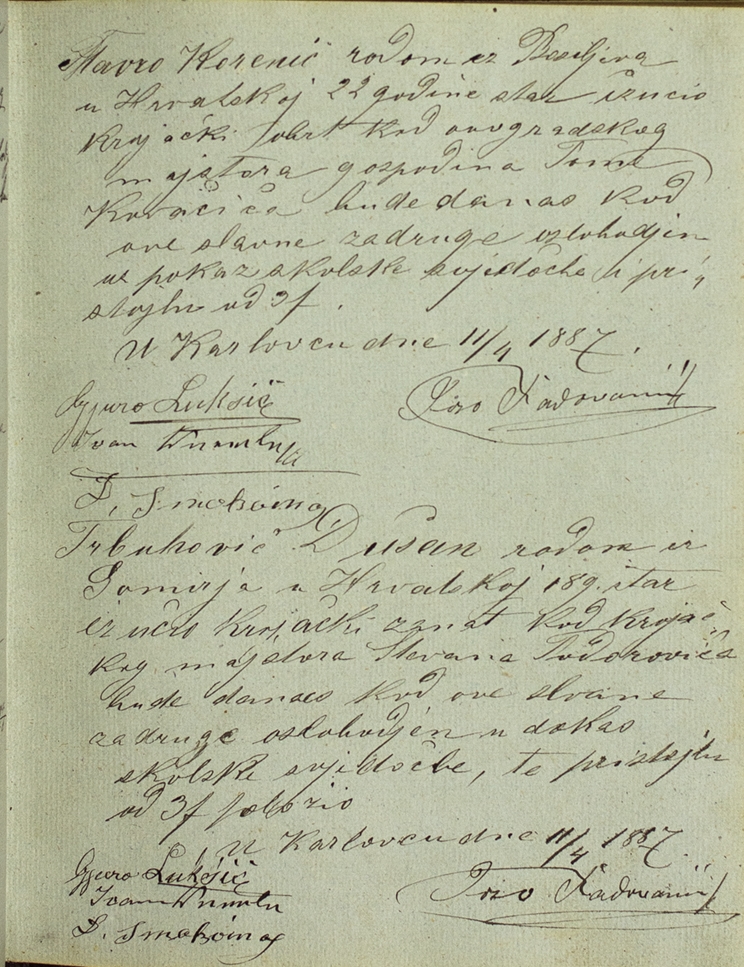 Stavro Korenić rodom iz Bosiljeva
u Hrvatskoj 22 godine star izučio
krojački obrt kod ovogradskog
majstora gospodina Tome
Kovačića bude danas kod
ove slavne zadruge oslobodjen
uz pokaz školske svjedočbe i pri„
stojbu od 3f.
U Karlovcu dne 11/4 1887.
Gjuro Lukšić
Joso Radovanić
Ivan
D.
Trbuhović Dušan rodom iz
Gomirja u Hrvatskoj 18g. star
izučio krojački zanat kod krojač„
kog majstora Stevana Todorovića
bude danas kod ove slavne
zadruge oslobodjen u dokaz
školske svjedočbe, te pristojbu
od 3f položio
U Karlovcu dne 11/4 1887.
Gjuro Lukšić
Joso Radovanić
Ivan
D.